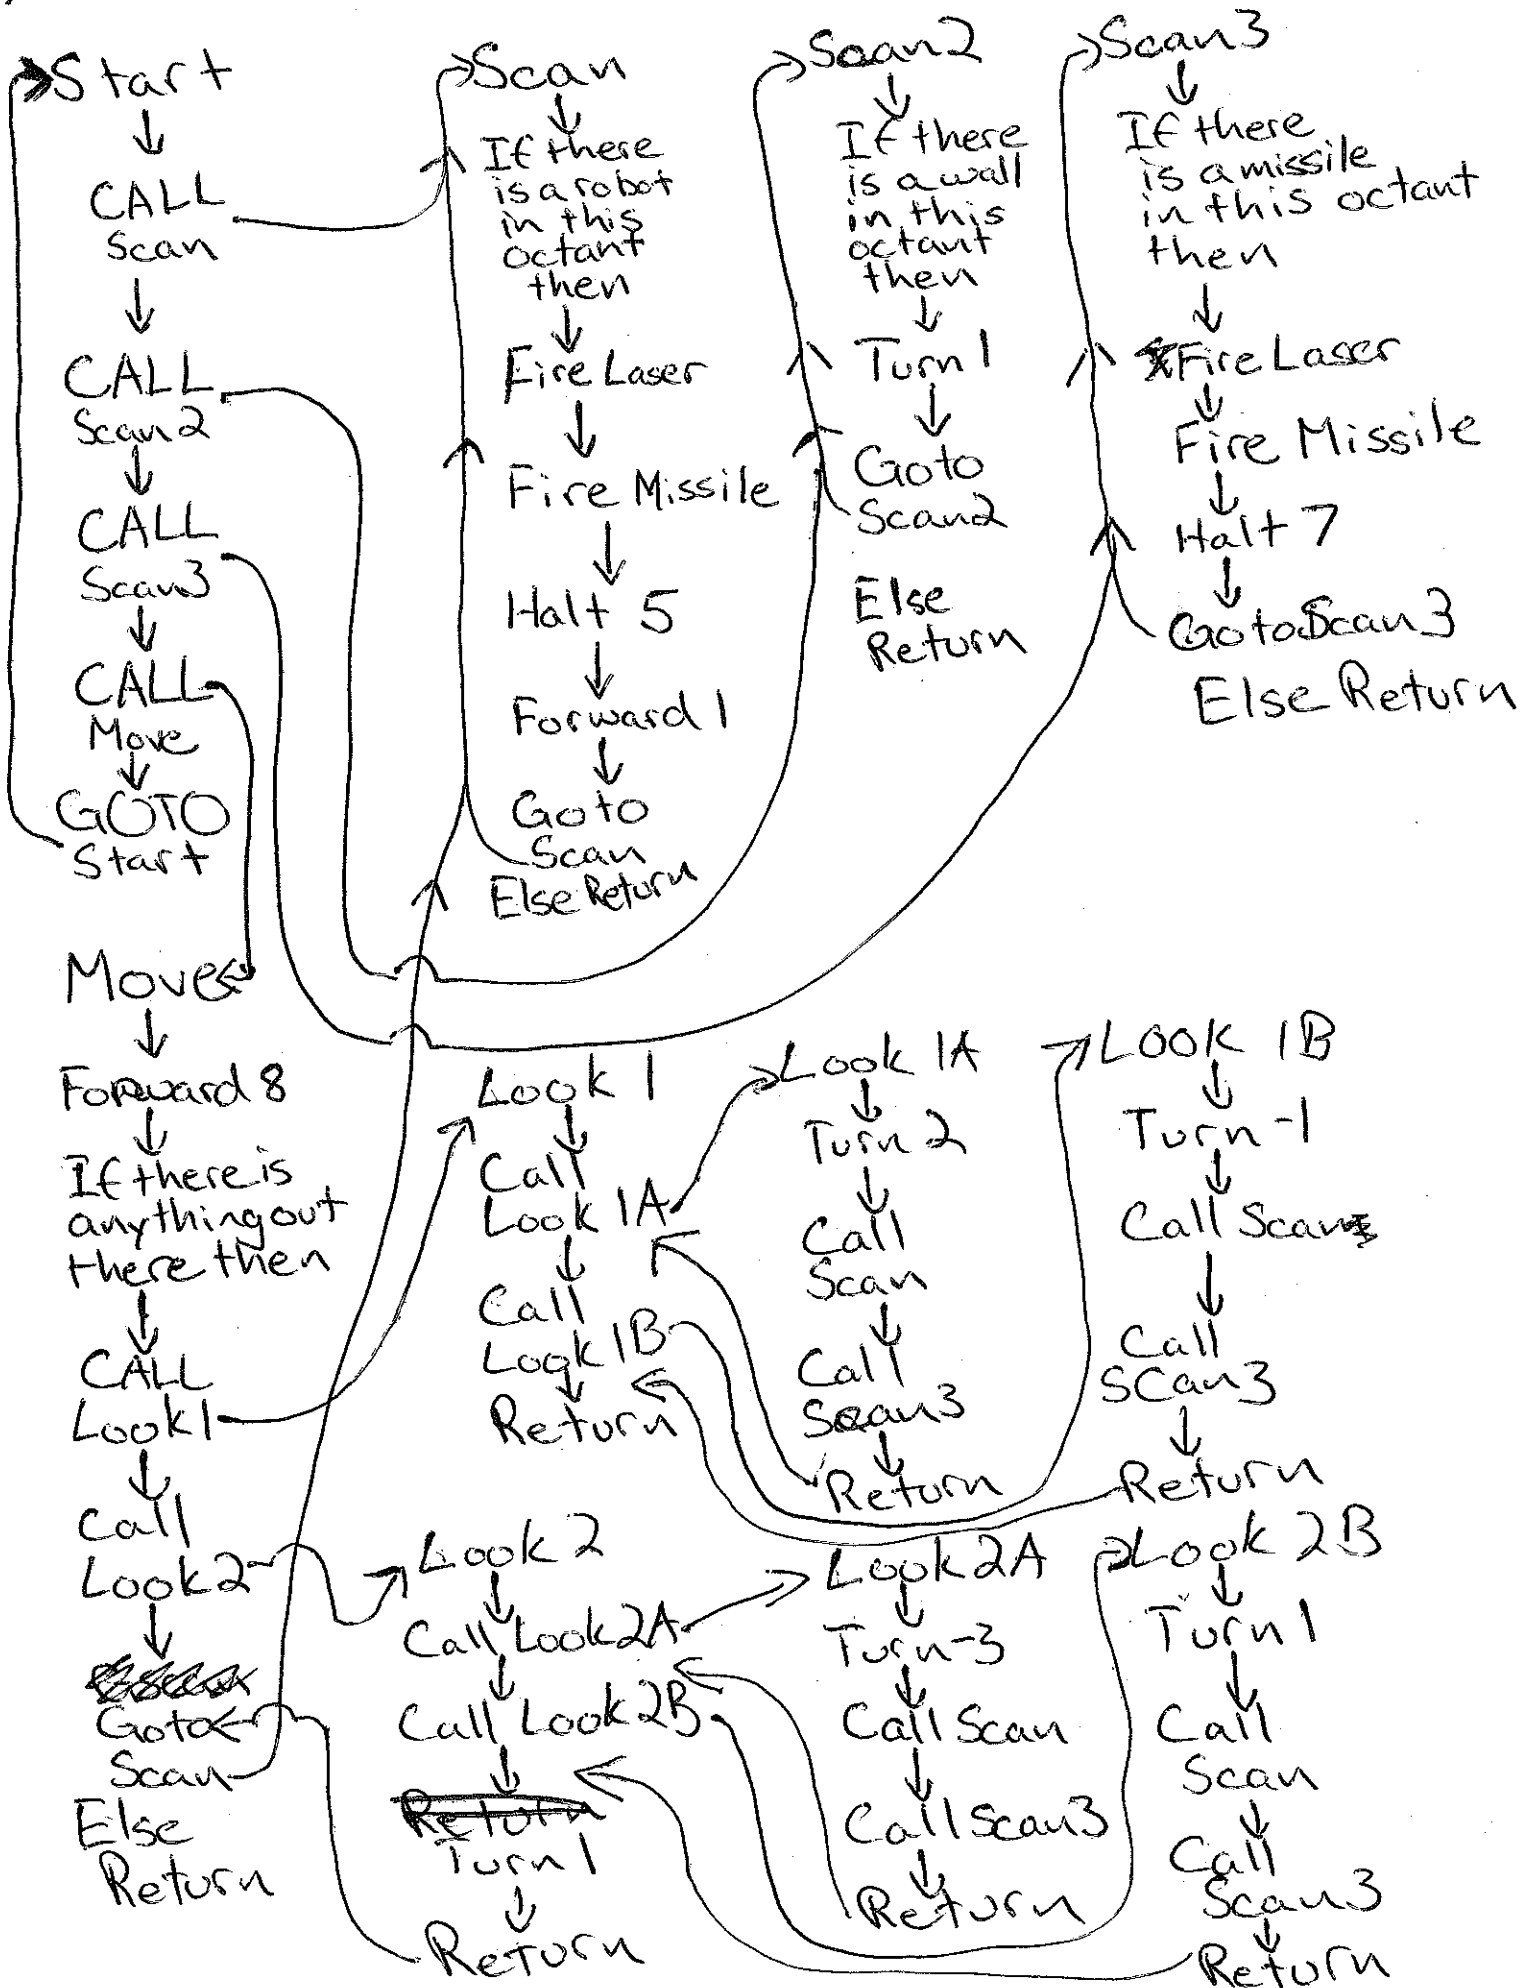 Start
CALL
Scan
CALL
Scan2
CALL
Scan3
CALL
Move
GOTO
Start
Scan
If there
is a robot
in this
octant
then
Fire Laser
Fire Missile
Halt 5
Forward 1
Goto
Scan
Else Return
Scan2
If there
is a wall
in this
octant
then
Turn 1
Goto
Scan2
Else
Return
Scan3
If there
is a missile
in this octant
then
Fire Laser
Fire Missile
Halt 7
Goto Scan3
Else Return
Move
Forward 8
If there is
anything out
there then
CALL
Look1
Call
Look2
Goto
Scan
Else
Return
Look 1
Call
Look 1A
Call
Look 1B
Return
Look 1A
Turn 2
Call
Scan
Call
Scan3
Return
Look 1B
Turn -1
Call Scan
Call
SCan3
Return
Look 2
Call Look2A
Call Look2B
Return
Turn 1
Return
Look2A
Turn-3
Call Scan
Call Scan3
Return
Look 2B
Turn 1
Call
Scan
Call
Scan3
Return